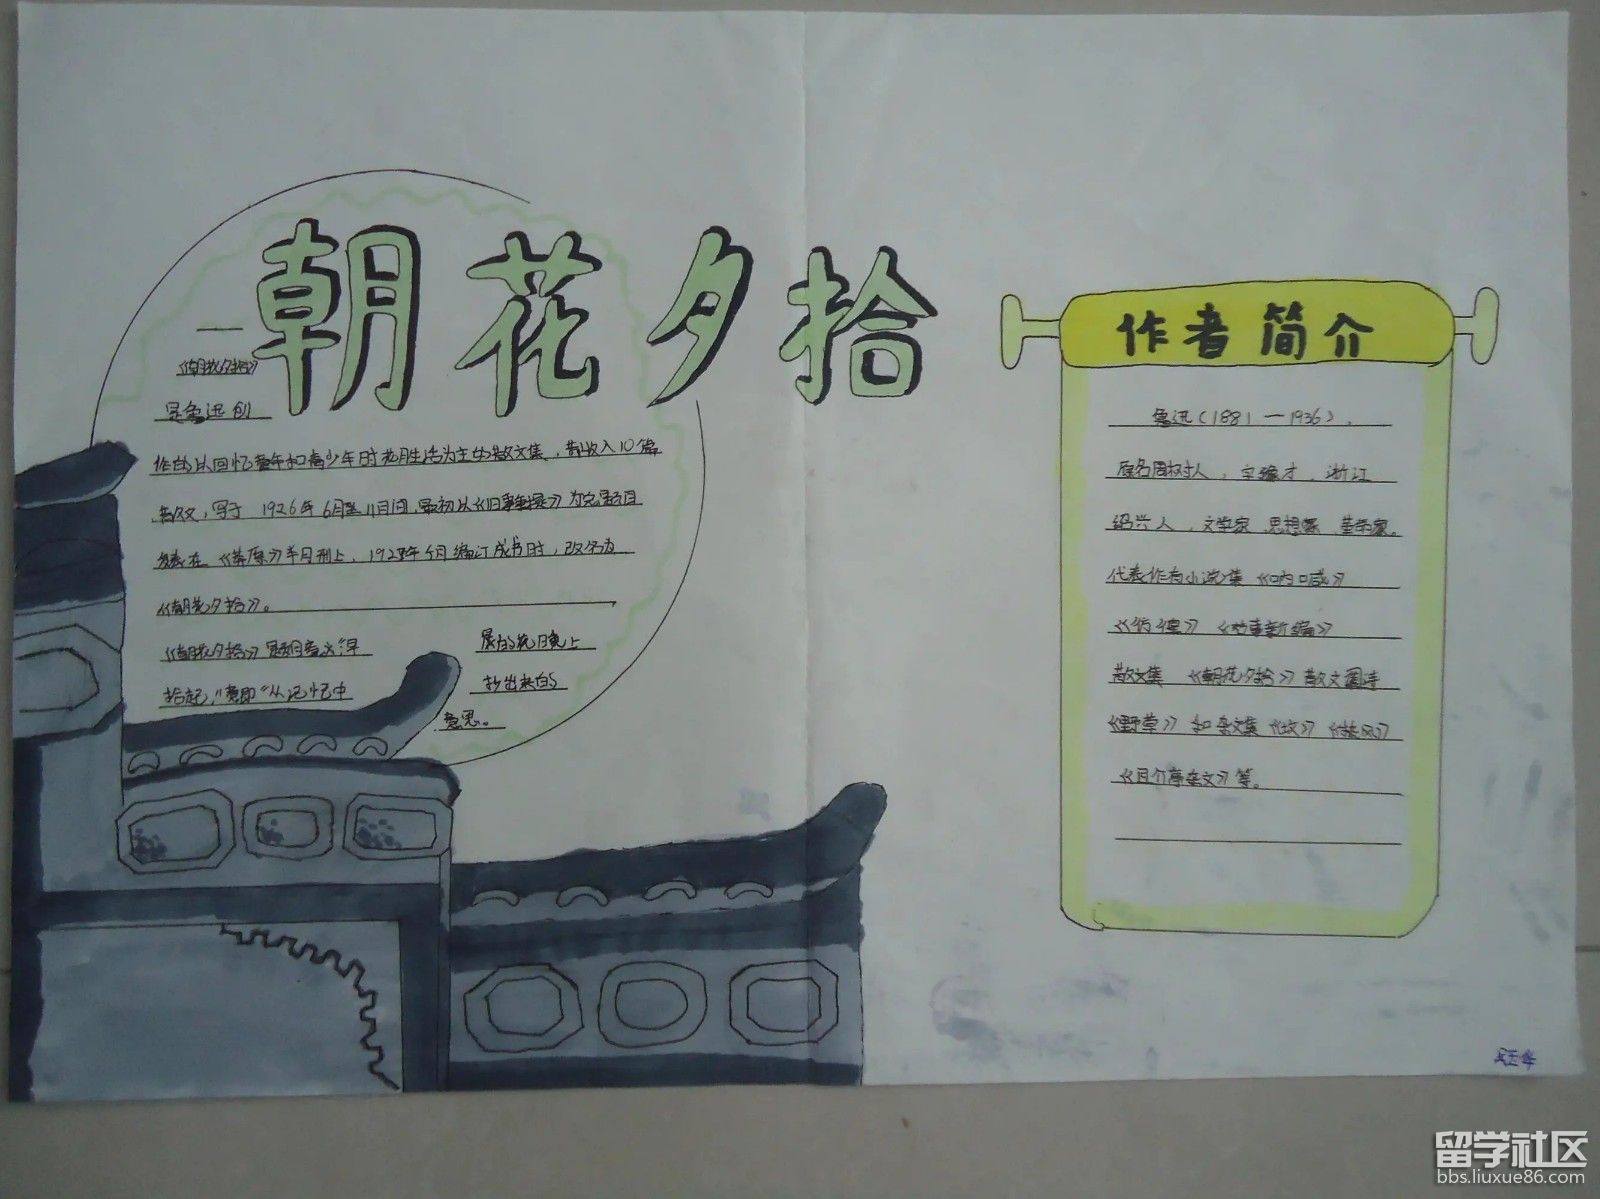 朝花夕拾
《朝花夕拾》
是鲁迅创
作的以回忆童年和青少年时花月生活为主的散文集,共收入10篇
散文,写于 1926年6月至11月间,最初以《旧事重提》为总题目
发表在《莽原》半月刊上,1927年5月编订成书时,改名为
《朝花夕拾》。
《朝花夕拾》题目意义"早
晨的花晚上
拾起,"意即"从记忆中
抄出来的
意思。
作者简介
鲁迅(1881—1936),
原名周树人,字豫才,浙江
绍兴人,文学家 思想家 革命家。
代表作有小说集《呐喊》
《彷徨》《故事新编》
散文集 《朝花夕拾》散文诗
《野草》和杂文集《坟》《热风》
《且介亭杂文》等。
留学社区
bbs.liuxue86.com